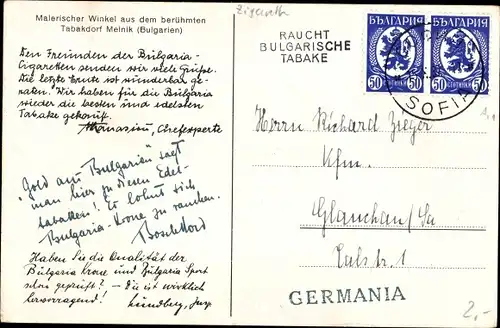 Malerischer Winkel aus dem berühmten
Tabakdorf Melnik (Bulgarien)
Den Freunden der Bulgaria-
Cigaretten senden wir viele Grüsse.
Die letzte Ernte ist wunderbar ge-
raten. Wir haben für die Bulgaria
wieder die besten und edelsten
Tabake gekauft.
Athanasiu, Chefexperte
"Gold aus Bulgarien" sagt
man hier zu diesen Edel-
tabaken! Es lohnt sich
Bulgaria-Krone zu rauchen.
Haben Sie die Qualität der
Bulgaria Krone und Bulgaria Sport
schon geprüft? – die ist wirklich
hervorragend! Lundberg,
RAUCHT
BULGARISCHE
TABAKE
БЪЛГАРИЯ БЪЛГАРИЯ
50 СТОТИНКИ 50 50 СТОТИНКИ 50
SOFIA
Herrn Richard Zieger
Kfm.
Glauchau/Sa
Talstr. 1
GERMANIA
2,-